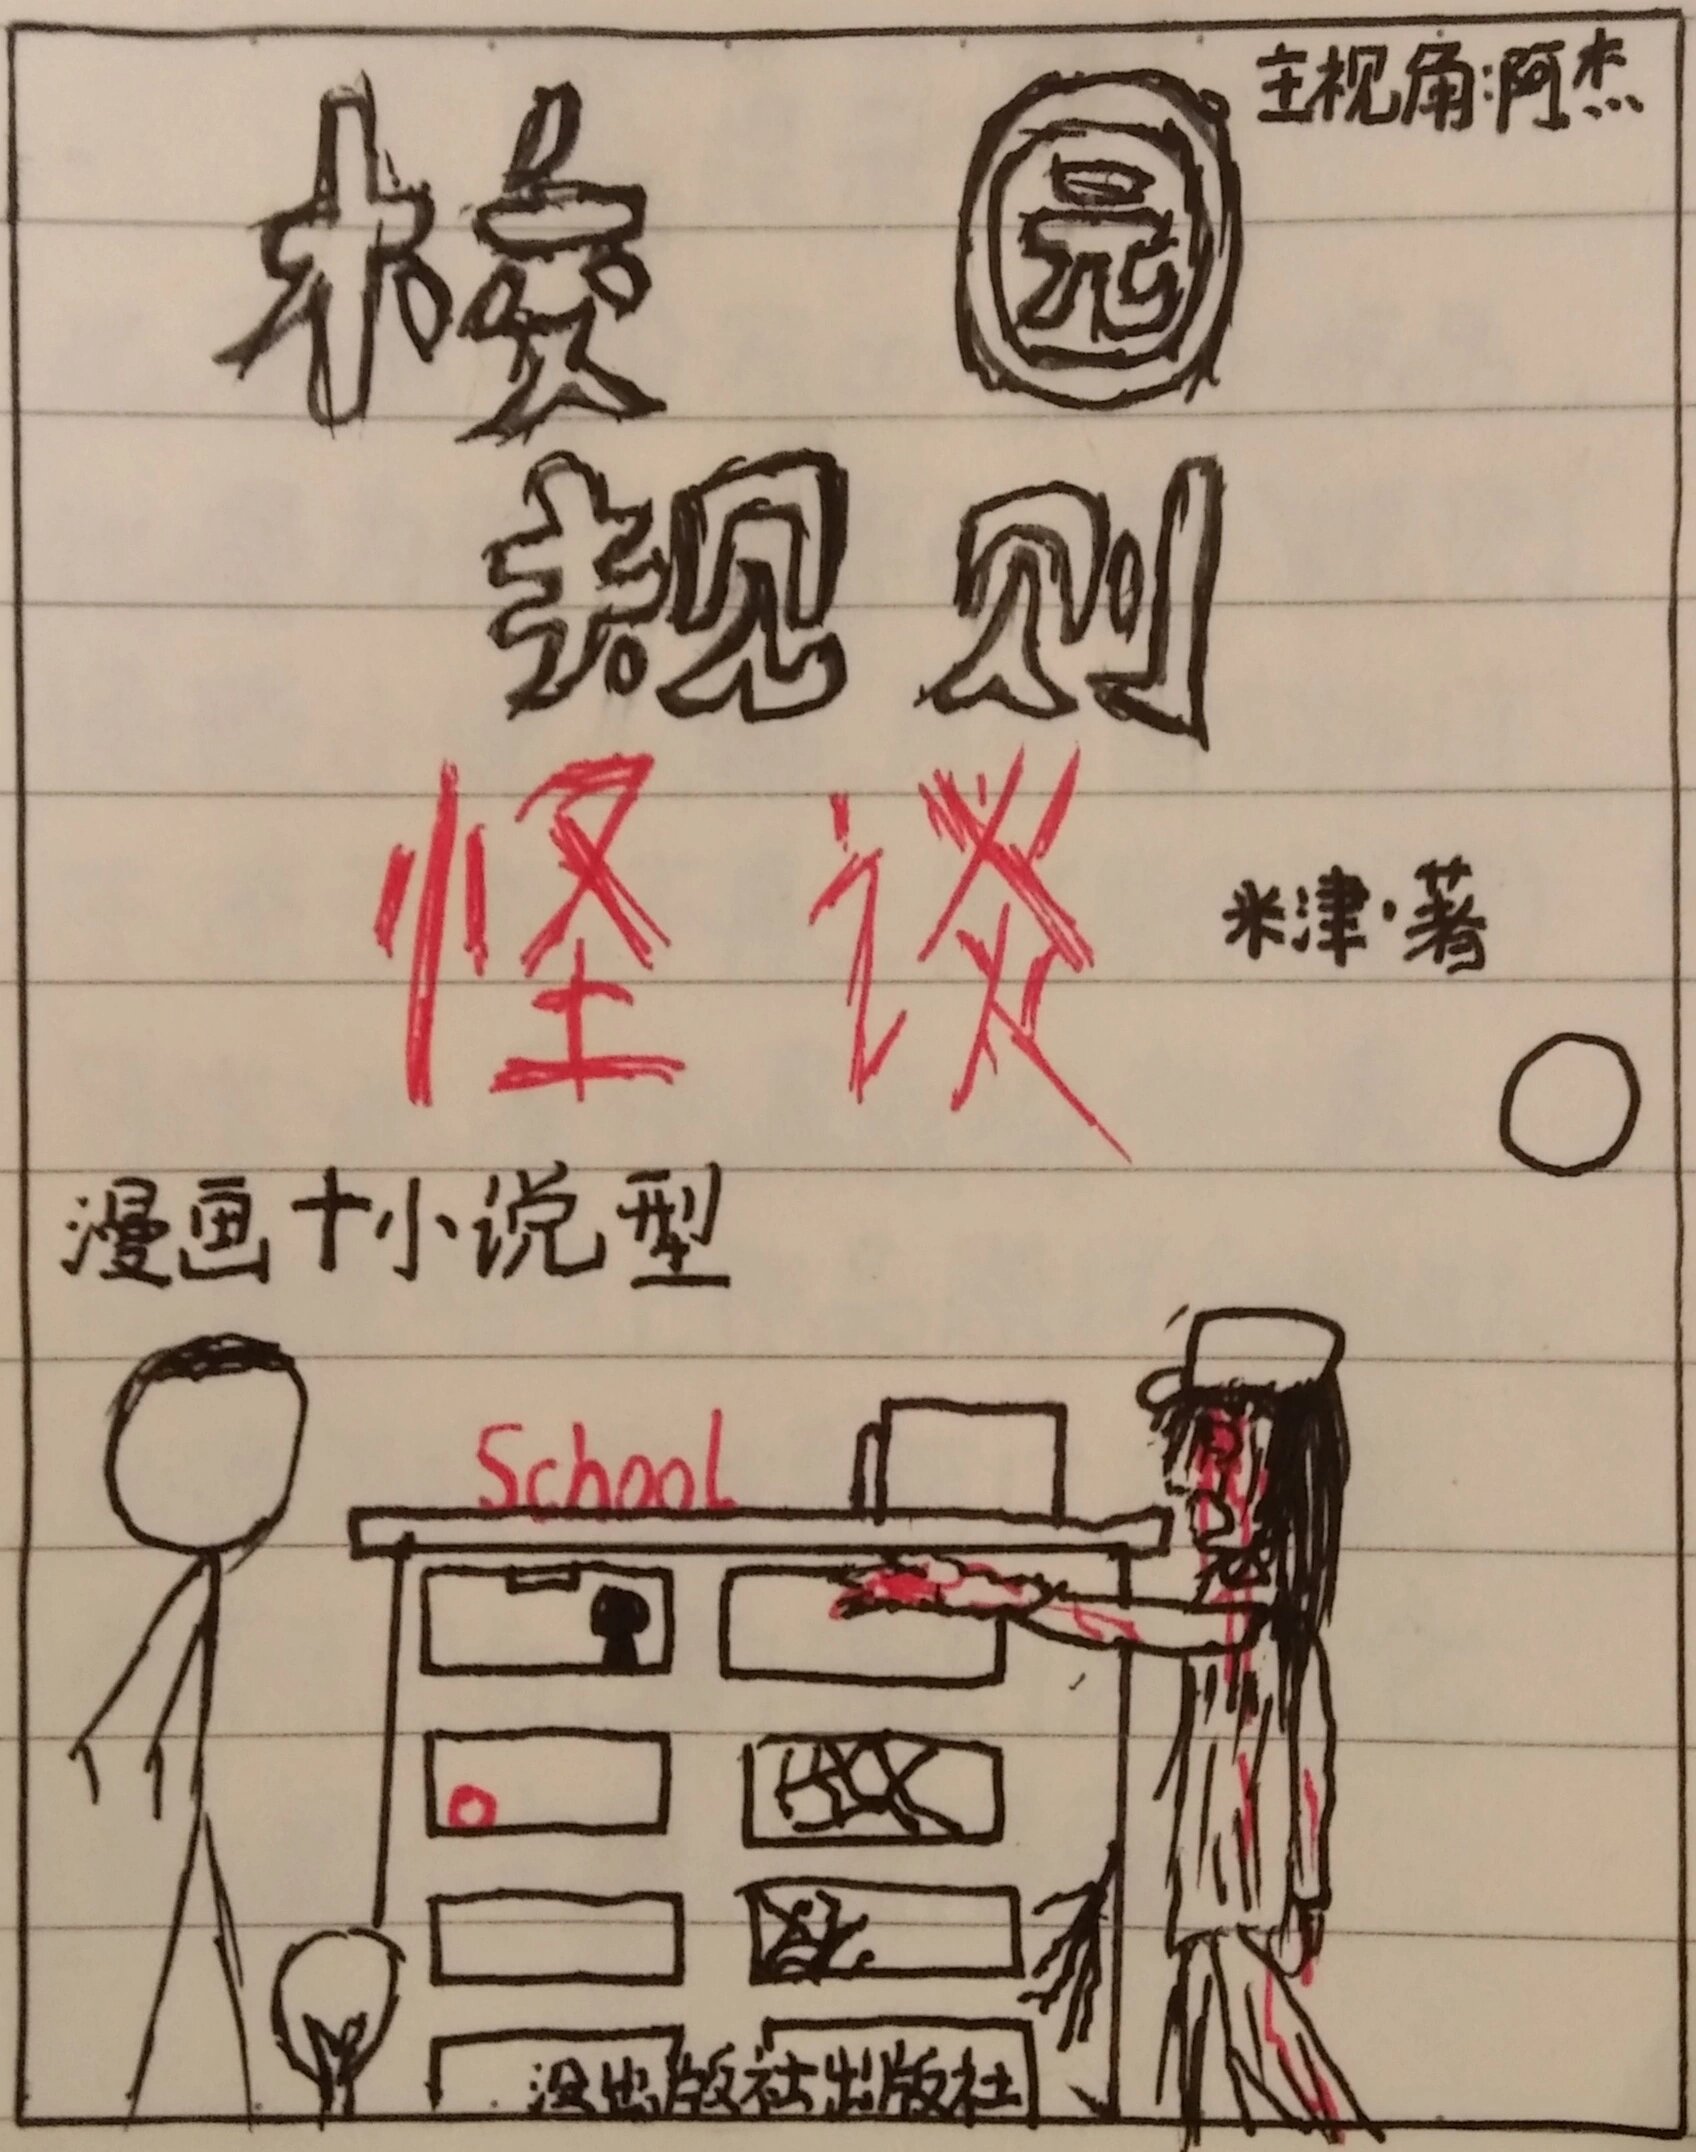 主视角:阿杰
校园
规则
怪谈
米津·著
漫画+小说型
School
没出版社出版社